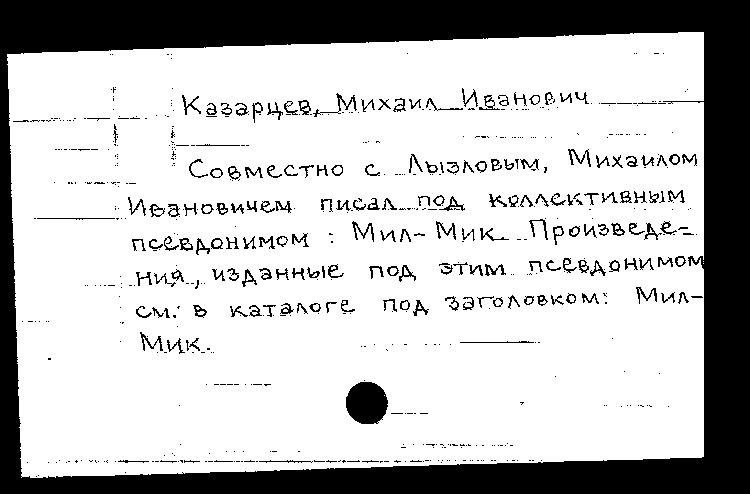 Казарцев, Михаил Иванович
Совместно с Лызловым, Михаилом
Ивановичем писал под коллективным
псевдонимом : Мил-Мик. Произведе=
ния, изданные под этим псевдонимом
см. в каталоге под заголовком: Мил-
Мик.